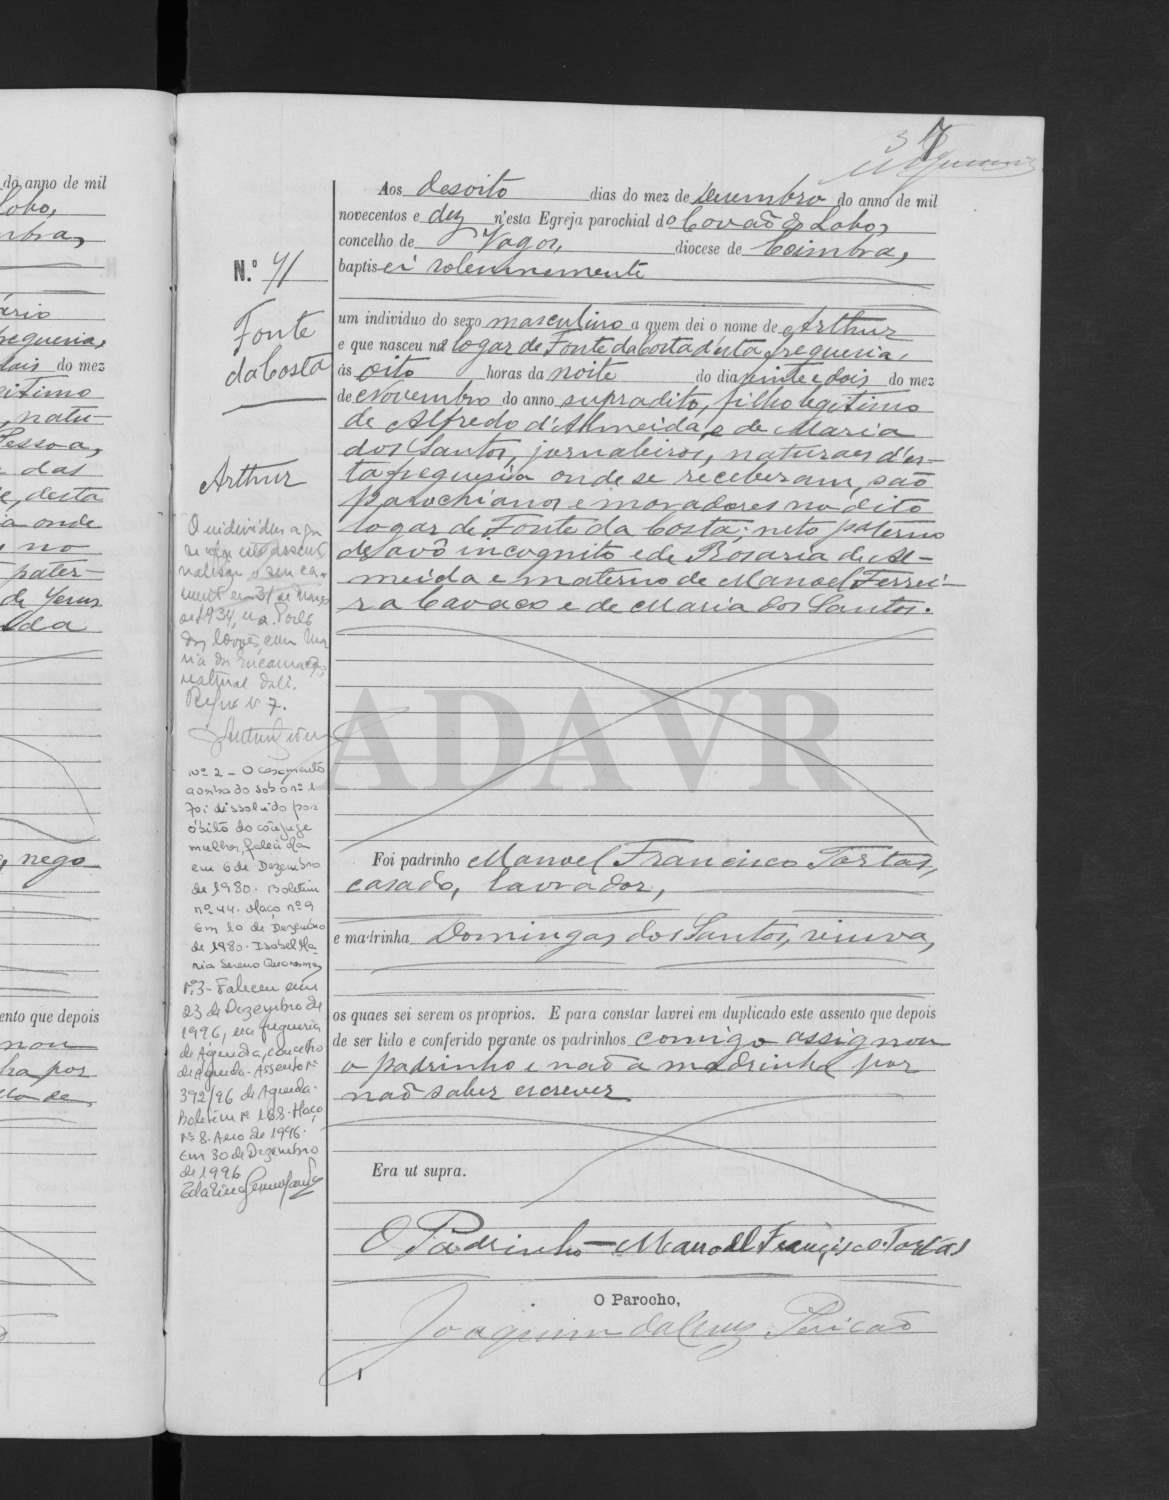 37
Aos desoito dias do mez de dezembro do anno de mil
novecentos e dez n'esta Egreja parochial do Covão do Lobo,
concelho de Vagos, diocese de Coimbra,
baptisei solemnemente
um individuo do sexo masculino a quem dei o nome de Arthur
e que nasceu no logar de Fonte da Costa d'esta freguesia,
ás oito horas da noite do dia vinte e dois do mez
de Novembro do anno supradito, filho legitimo
de Alfredo d'Almeida, e de Maria
dos Santos, jornaleiros, naturaes d'es-
ta freguesia onde se receberam, são
parochianos e moradores no dito
logar de Fonte da Costa; neto paterno
de avô incognito e de Rosaria de Al-
meida e materno de Manoel Ferrei-
ra Cavaco e de Maria dos Santos.
Foi padrinho Manoel Francisco Tortas,
casado, lavrador,
e madrinha Domingas dos Santos, viuva,
os quaes sei serem os proprios. E para constar lavrei em duplicado este assento que depois
de ser lido e conferido perante os padrinhos comigo assignou
o padrinho e não a madrinha por
não saber escrever
Era ut supra.
O Padrinho - Manoel Francisco Tortas
O Parocho,
Joaquim da Cruz Pericão
N.º 71
Fonte
da Costa
Arthur
O individuo a que
se refere
o seu ca-
samento em 31 de Março
de 1934,
com Ma-
ria da Encarnação
natural dali.
Reg.º n.º 7.
Nº 2 - O casamento
averbado sob o nº 1
foi dissolvido por
óbito do cônjuge
mulher, falecida
em 6 de Dezembro
de 1980. Boletim
nº 44. Maço nº 9
Em 10 de Dezembro
de 1980. Isabel Ma-
ria Sereno
Nº 3 - Faleceu em
23 de Dezembro de
1996, na freguesia
de Agueda, concelho
de Agueda. Assento nº
392/96 de Agueda.
Boletim nº 188. Maço
nº 8. Ano de 1996.
Em 30 de Dezembro
de 1996
do anno de mil
Lobo,
mbra,
ario
freguesia,
dois do mez
gitimo
, natu-
Pessoa,
das
e, desta
a onde
no
pater-
de Jesus
da
, nego
ento que depois
nou
por
ADAVR